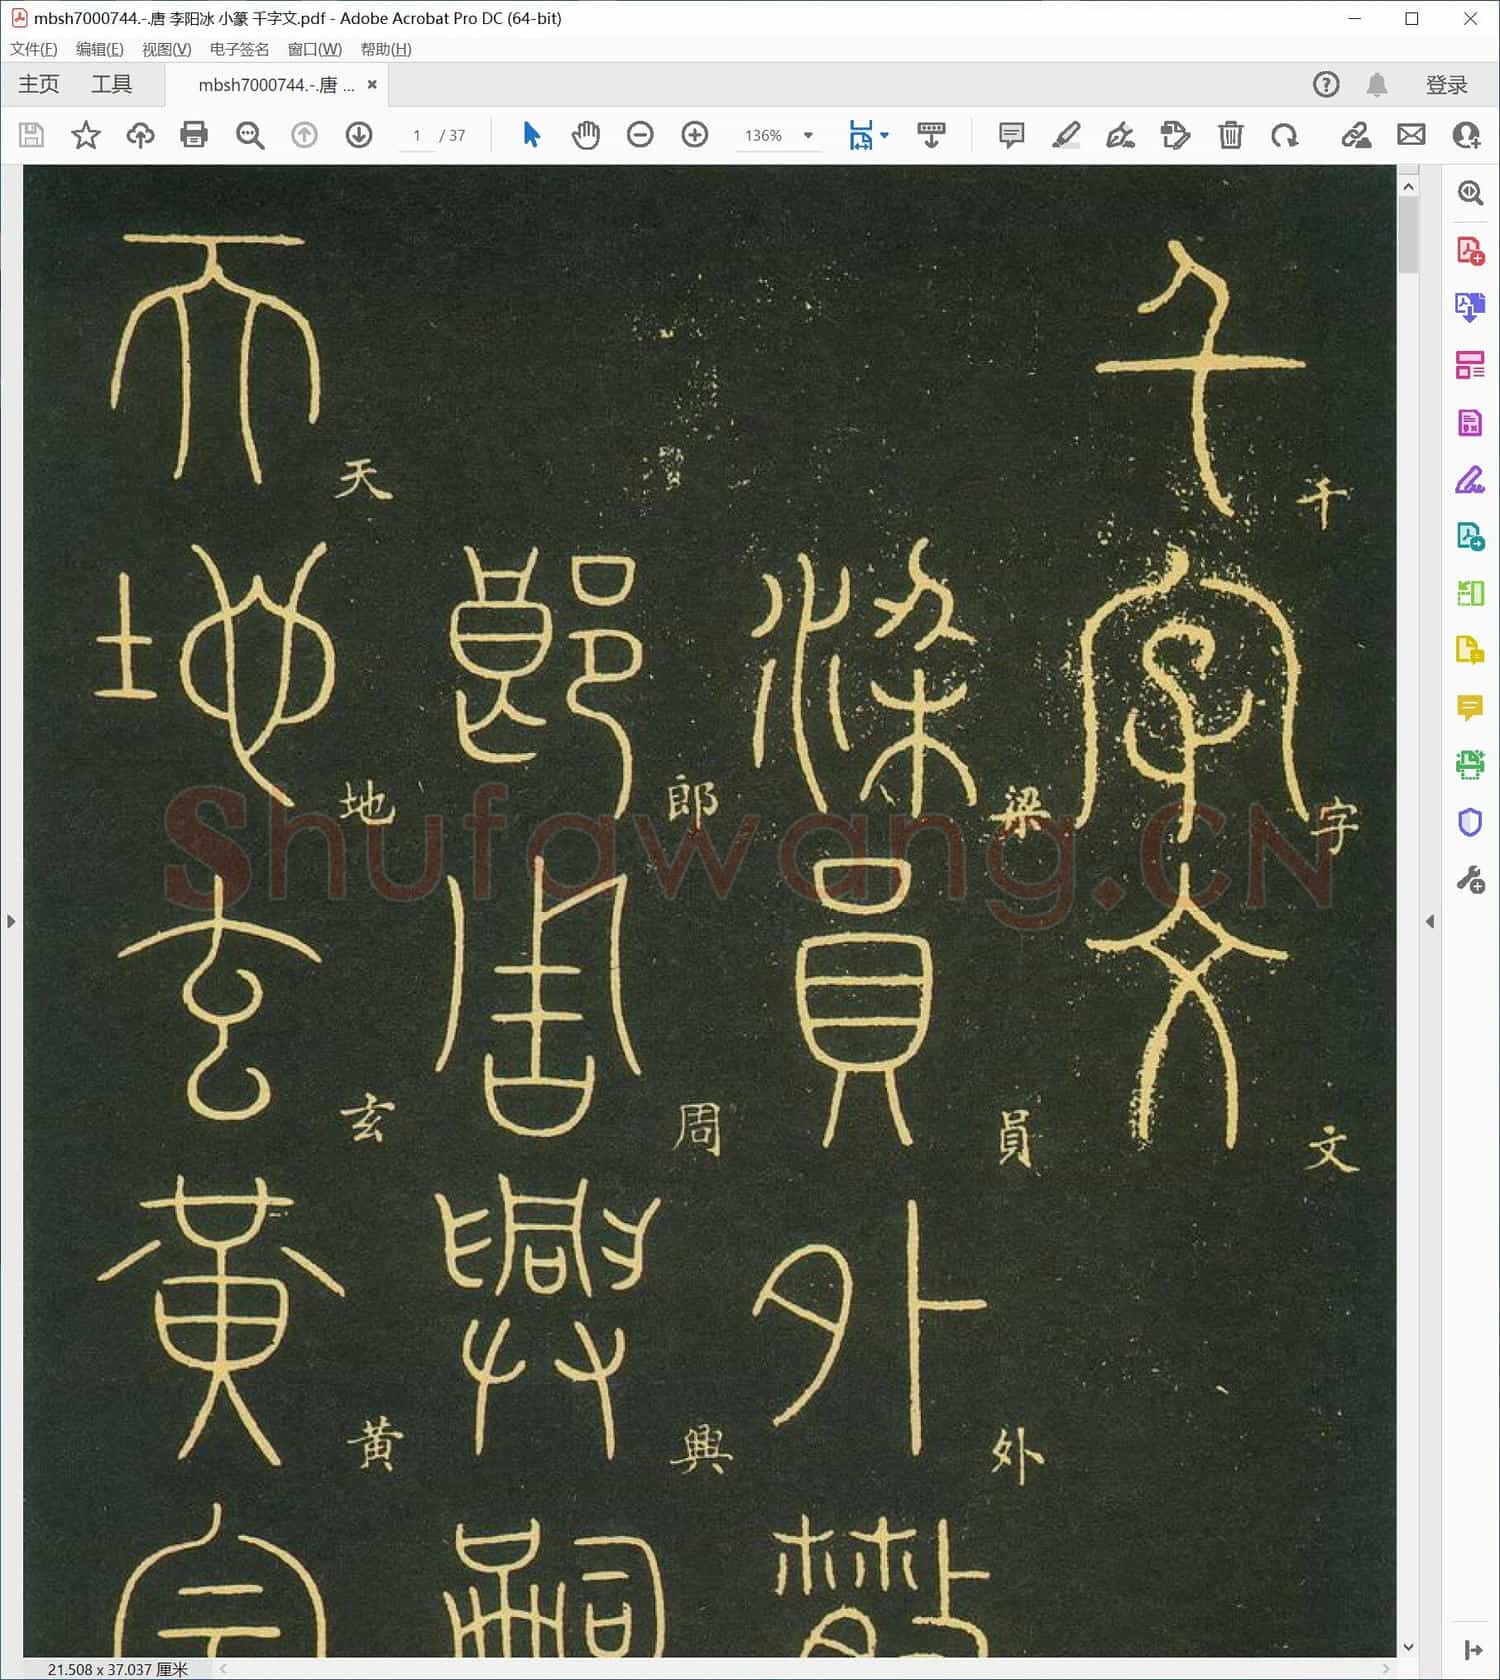 mbsh7000744.-.唐 李阳冰 小篆 千字文.pdf - Adobe Acrobat Pro DC (64-bit)
文件(F) 编辑(E) 视图(V) 电子签名 窗口(W) 帮助(H)
主页 工具 mbsh7000744.-.唐 ... 登录
1 / 37 136%
千字文
千字文
梁員外
梁員外
郎周興嗣
郎周興
天地玄黃
天地玄黄
Shufawang.CN
21.508 x 37.037 厘米